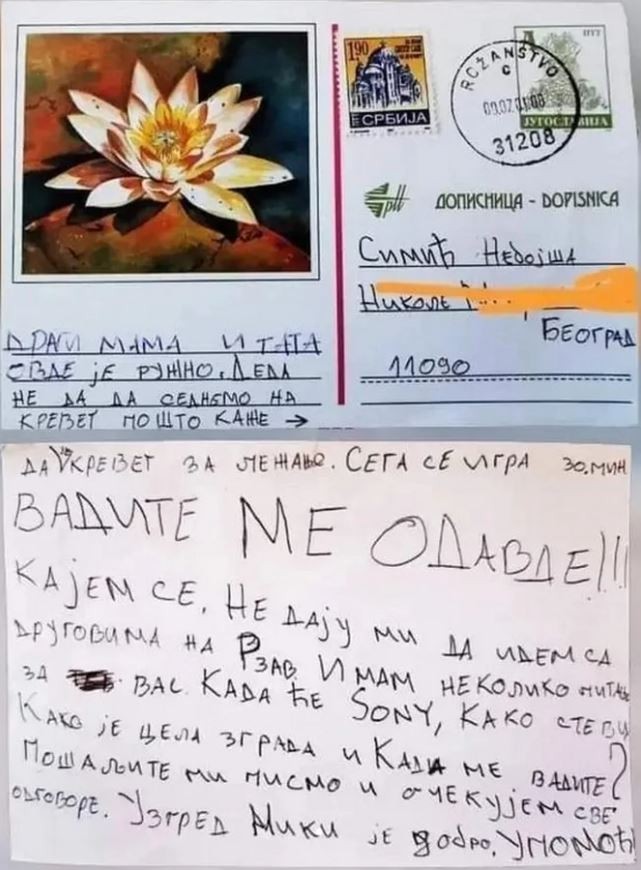 1,90
СРБИЈА
РОЖАНСТВО
С
09.07.01-08
31208
А
ПТТ
ЈУГОСЛАВИЈА
ptt
ДОПИСНИЦА - DOPISNICA
СИМИЋ НЕБОЈША
НИКОЛЕ
БЕОГРАД
11090
ДРАГИ МАМА И ТАТА
ОВДЕ ЈЕ РУЖНО. ДЕДА
НЕ ДА ДА СЕДНЕМО НА
КРЕВЕТ ПОШТО КАЖЕ →
ДА ЈЕ КРЕВЕТ ЗА ЛЕЖАЊЕ. СЕГА СЕ ИГРА 30.МИН
ВАДИТЕ МЕ ОДАВДЕ!!!
КАЈЕМ СЕ. НЕ ДАЈУ МИ ДА ИДЕМ СА
ДРУГОВИМА НА РЗАВ. ИМАМ НЕКОЛИКО ПИТАЊА
ЗА ВАС. КАДА ЋЕ SONY, КАКО СТЕ ВИ
КАКО ЈЕ ЦЕЛА ЗГРАДА И КАДА МЕ ВАДИТЕ?
ПОШАЉИТЕ МИ ПИСМО И ОЧЕКУЈЕМ СВЕ
ОДГОВОРЕ. УЗГРЕД МИКИ ЈЕ ДОБРО. УПОМОЋ!